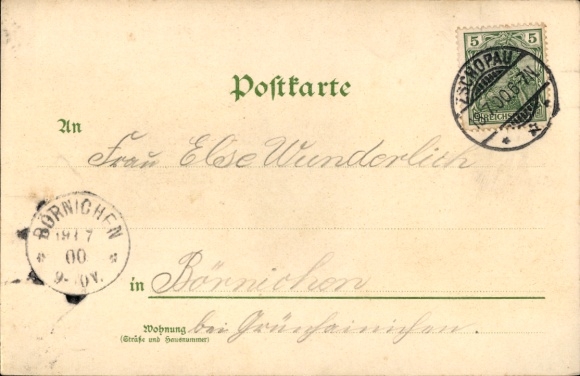 5 5
REICHSPOST
ZSCHOPAU
.00.6-7N
Postkarte
An
Frau Else Wunderlich
BÖRNICHEN
19 7
00
9-10V.
in Börnichen
Wohnung
(Straße und Hausnummer)
bei Grünhainichen.